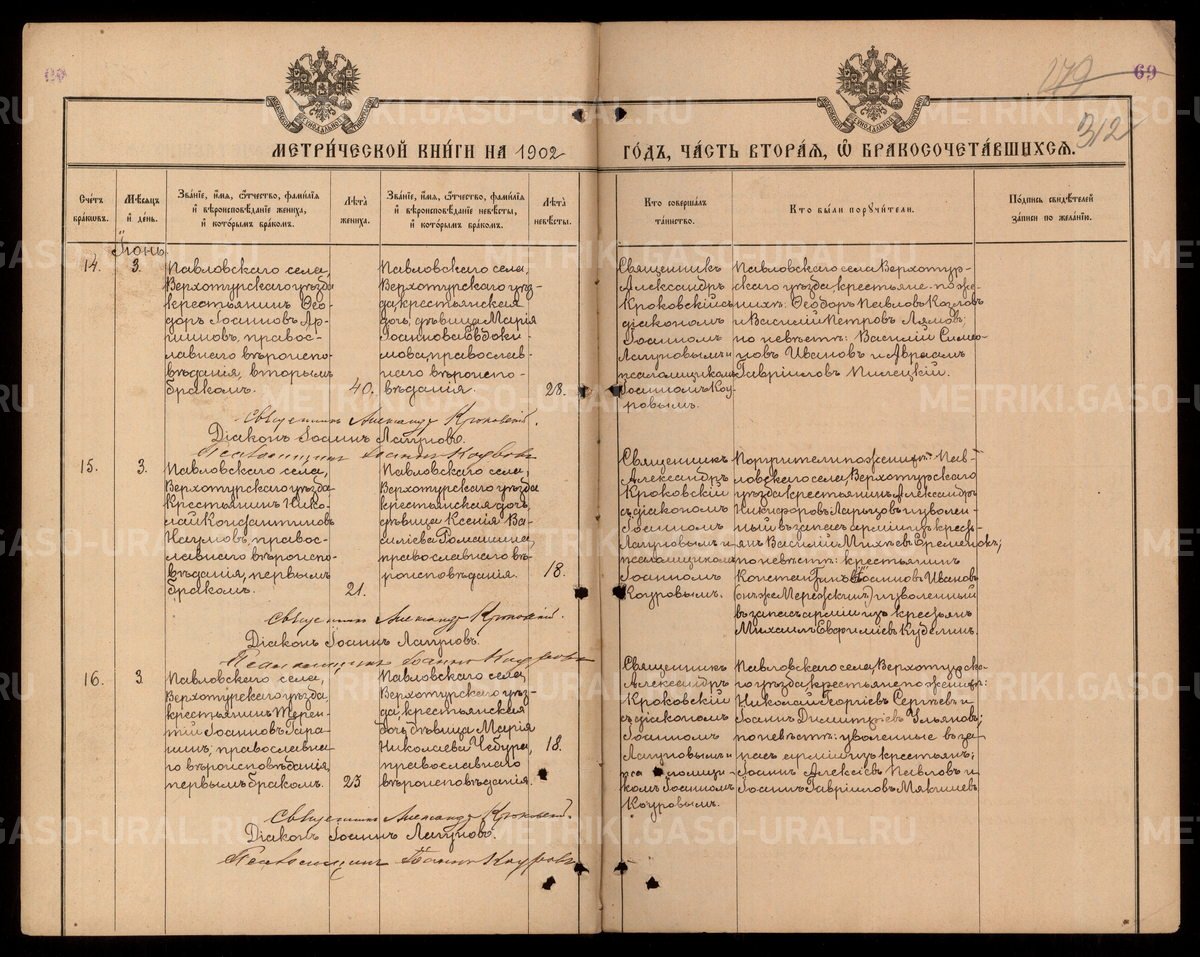 69
179
312
МЕТРИ́ЧЕСКОЙ КНИ́ГИ НА 1902
ГО́ДЪ, ЧА́СТЬ ВТОРА́Я, Ѡ БРАКОСОЧЕТА́ВШИХСЯ.
Сче́тъ бра́ковъ.
Мѣ́сяцъ и҆ де́нь.
Зва́нїе, и҆́мя, ѻ҆́тчество, фами́лїѧ
и҆ вѣроисповѣ́данїе жениха̀,
и҆ кото́рымъ бра́комъ.
Лѣ́та жениха̀.
Зва́нїе, и҆́мя, ѻ҆́тчество, фами́лїѧ
и҆ вѣроисповѣ́данїе невѣ́сты,
и҆ кото́рымъ бра́комъ.
Лѣ́та невѣ́сты.
Кто̀ соверша́лъ
та́инство.
Кто̀ бы́ли порꙋчи́тели.
По́дпись свидѣ́телей
за́писи по жела́нїю.
Іюнь
14.
3.
Павловскаго села,
Верхотурскаго уѣзда
крестьянинъ Ѳео-
доръ Іоанновъ Ар-
пиновъ, правос-
лавнаго вѣроиспо-
вѣданія, вторымъ
бракомъ.
40.
Павловскаго села,
Верхотурскаго уѣз-
да, крестьянская
дочь, дѣвица Марія
Іоаннова Евдоки-
мова, православ-
наго вѣроиспо-
вѣданія.
28.
Священникъ
Александръ
Кроковскій съ
діакономъ
Іоанномъ
Лапуовымъ и
псаломщикомъ
Іоанномъ Коу-
ровымъ.
Павловскаго села Верхотур-
скаго уѣзда крестьяне: по же-
нихѣ: Ѳеодоръ Павловъ Козловъ
и Василій Петровъ Лямовъ;
по невѣстѣ: Василій Симо-
новъ Ивановъ и Авраамъ
Гавріиловъ Пилецкій.
Священникъ Александръ Кроковскій.
Діаконъ Іоаннъ Лапуовъ.
Псаломщикъ Іоаннъ Коуровъ
15.
3.
Павловскаго села,
Верхотурскаго уѣзда
крестьянинъ Нико-
лай Константиновъ
Наумовъ, правос-
лавнаго вѣроиспо-
вѣданія, первымъ
бракомъ.
21.
Павловскаго села,
Верхотурскаго уѣзда
крестьянская дочь,
дѣвица Ксенія Ва-
силіева Ромашина,
православнаго вѣ-
роисповѣданія.
18.
Священникъ
Александръ
Кроковскій
съ діакономъ
Іоанномъ
Лапуовымъ и
псаломщикомъ
Іоанномъ
Коуровымъ.
Поручители по женихѣ: Пав-
ловскаго села, Верхотурскаго
уѣзда крестьянинъ Александръ
Никифоровъ Ларьковъ и уволен-
ный въ запасъ арміи изъ кресть-
янъ Василій Михѣевъ Еременокъ;
по невѣстѣ: крестьянинъ
Константиновъ Іоанновъ Ивановъ
(онъ же Мережскій) и уволенный
въ запасъ арміи изъ крестьянъ
Михаилъ Евфиміевъ Куделинъ.
Священникъ Александръ Кроковскій.
Діаконъ Іоаннъ Лапуовъ.
Псаломщикъ Іоаннъ Коуровъ
16.
3.
Павловскаго села,
Верхотурскаго уѣзда,
крестьянинъ Терен-
тій Іоанновъ Гара-
нинъ, православна-
го вѣроисповѣданія,
первымъ бракомъ.
23
Павловскаго села,
Верхотурскаго уѣз-
да, крестьянская
дочь, дѣвица Марія
Николаева Чебура,
православнаго
вѣроисповѣданія.
18.
Священникъ
Александръ
Кроковскій
съ діакономъ
Іоанномъ
Лапуовымъ и
псаломщи-
комъ Іоанномъ
Коуровымъ.
Павловскаго села, Верхотурска-
го уѣзда крестьяне по женихѣ:
Николай Георгіевъ Сергѣевъ и
Іоаннъ Димитріевъ Ульяновъ;
по невѣстѣ: уволенные въ за-
пасъ арміи изъ крестьянъ:
Іоаннъ Алексіевъ Павловъ и
Іоаннъ Гавріиловъ Мякшиевъ.
Священникъ Александръ Кроковскій.
Діаконъ Іоаннъ Лапуовъ.
Псаломщикъ Іоаннъ Коуровъ
METRIKI.GASO-URAL.RU